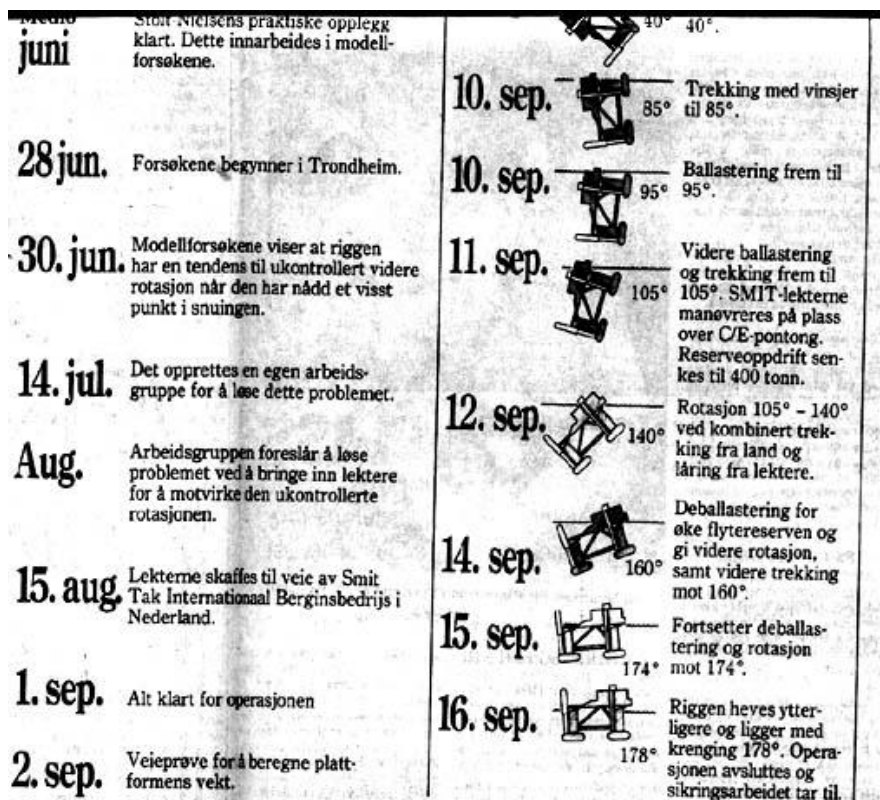 Medio
juni
Stolt-Nielsens praktiske opplegg
klart. Dette innarbeides i modell-
forsøkene.
28 jun.
Forsøkene begynner i Trondheim.
30. jun.
Modellforsøkene viser at riggen
har en tendens til ukontrollert videre
rotasjon når den har nådd et visst
punkt i snuingen.
14. jul.
Det opprettes en egen arbeids-
gruppe for å løse dette problemet.
Aug.
Arbeidsgruppen foreslår å løse
problemet ved å bringe inn lektere
for å motvirke den ukontrollerte
rotasjonen.
15. aug.
Lekterne skaffes til veie av Smit
Tak Internationaal Berginsbedrijs i
Nederland.
1. sep.
Alt klart for operasjonen
2. sep.
Veieprøve for å beregne platt-
formens vekt.
40°
40°.
10. sep.
85°
Trekking med vinsjer
til 85°.
10. sep.
95°
Ballastering frem til
95°.
11. sep.
105°
Videre ballastering
og trekking frem til
105°. SMIT-lekterne
manøvreres på plass
over C/E-pontong.
Reserveoppdrift sen-
kes til 400 tonn.
12. sep.
140°
Rotasjon 105° – 140°
ved kombinert trek-
king fra land og
låring fra lektere.
14. sep.
160°
Deballastering for
øke flytereserven og
gi videre rotasjon,
samt videre trekking
mot 160°.
15. sep.
174°
Fortsetter deballas-
tering og rotasjon
mot 174°.
16. sep.
178°
Riggen heves ytter-
ligere og ligger med
krenging 178°. Opera-
sjonen avsluttes og
sikringsarbeidet tar til.